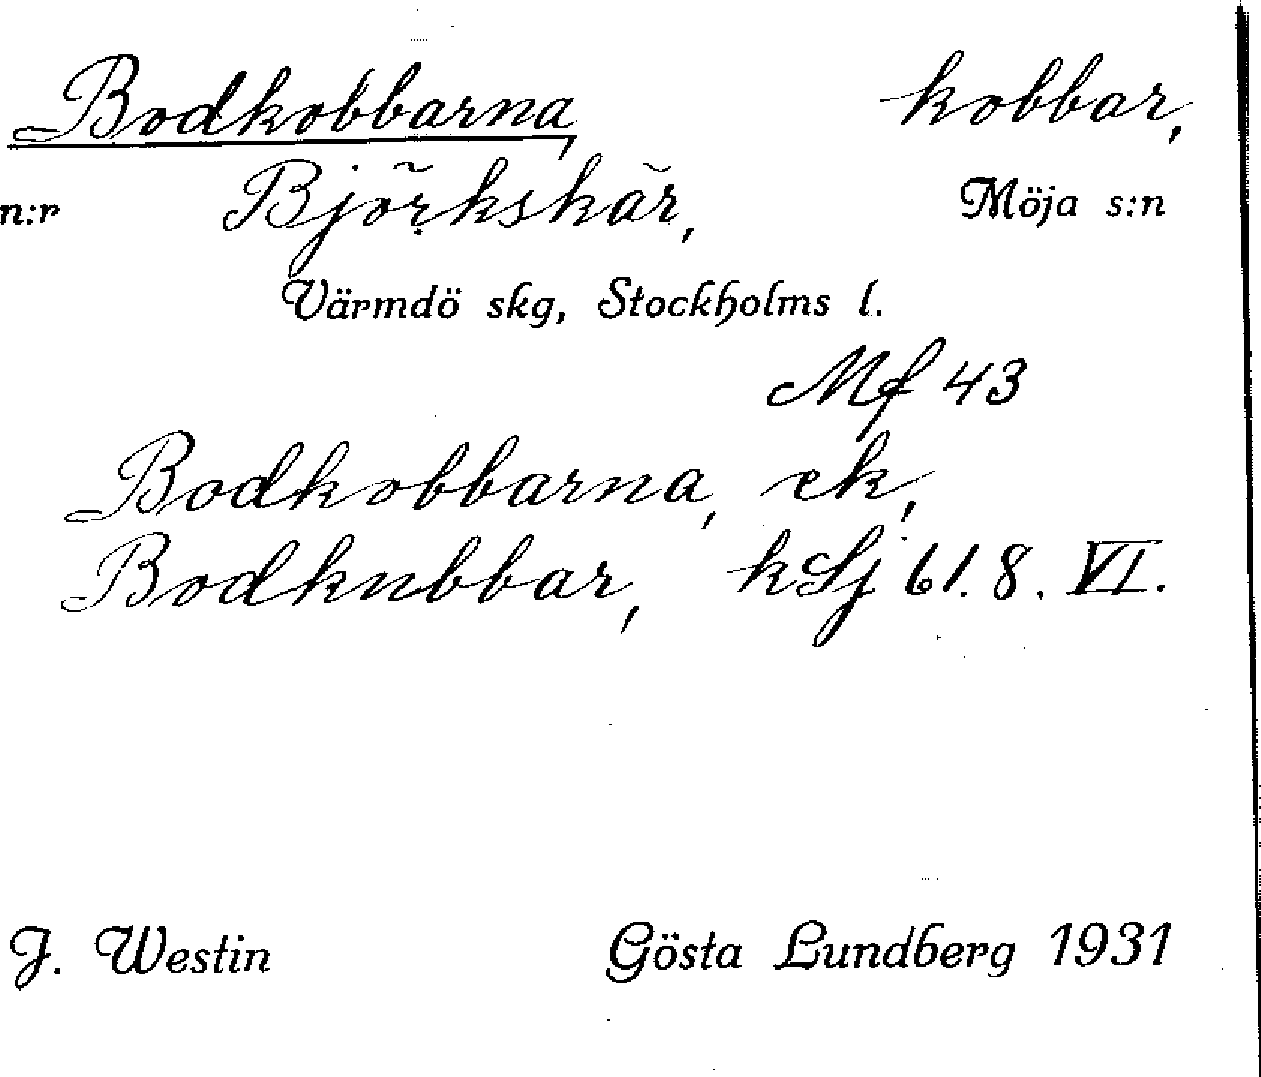 Bodkobbarna, kobbar,
n:r Björkskär, Möja s:n
Värmdö skg, Stockholms l.
Mf 43
Bodkobbarna, ek,
Bodkubbar, kSj 61. 8. VI.
J. Westin Gösta Lundberg 1931